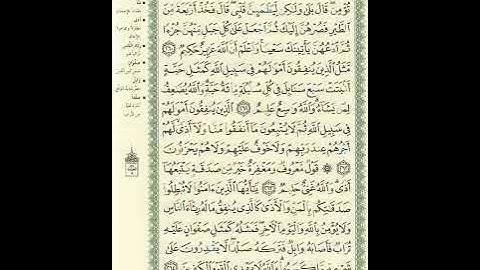 تُؤْمِنْ قَالَ بَلَىٰ وَلَٰكِنْ لِيَطْمَئِنَّ قَلْبِي قَالَ فَخُذْ أَرْبَعَةً مِنَ
الطَّيْرِ فَصُرْهُنَّ إِلَيْكَ ثُمَّ اجْعَلْ عَلَىٰ كُلِّ جَبَلٍ مِنْهُنَّ جُزْءًا
ثُمَّ ادْعُهُنَّ يَأْتِينَكَ سَعْيًا وَاعْلَمْ أَنَّ اللَّهَ عَزِيزٌ حَكِيمٌ
مَثَلُ الَّذِينَ يُنْفِقُونَ أَمْوَالَهُمْ فِي سَبِيلِ اللَّهِ كَمَثَلِ حَبَّةٍ
أَنْبَتَتْ سَبْعَ سَنَابِلَ فِي كُلِّ سُنْبُلَةٍ مِائَةُ حَبَّةٍ وَاللَّهُ يُضَاعِفُ
لِمَنْ يَشَاءُ وَاللَّهُ وَاسِعٌ عَلِيمٌ الَّذِينَ يُنْفِقُونَ أَمْوَالَهُمْ
فِي سَبِيلِ اللَّهِ ثُمَّ لَا يُتْبِعُونَ مَا أَنْفَقُوا مَنًّا وَلَا أَذًى لَهُمْ
أَجْرُهُمْ عِنْدَ رَبِّهِمْ وَلَا خَوْفٌ عَلَيْهِمْ وَلَا هُمْ يَحْزَنُونَ
قَوْلٌ مَعْرُوفٌ وَمَغْفِرَةٌ خَيْرٌ مِنْ صَدَقَةٍ يَتْبَعُهَا
أَذًى وَاللَّهُ غَنِيٌّ حَلِيمٌ يَا أَيُّهَا الَّذِينَ آمَنُوا لَا تُبْطِلُوا
صَدَقَاتِكُمْ بِالْمَنِّ وَالْأَذَىٰ كَالَّذِي يُنْفِقُ مَالَهُ رِئَاءَ النَّاسِ
وَلَا يُؤْمِنُ بِاللَّهِ وَالْيَوْمِ الْآخِرِ فَمَثَلُهُ كَمَثَلِ صَفْوَانٍ عَلَيْهِ
تُرَابٌ فَأَصَابَهُ وَابِلٌ فَتَرَكَهُ صَلْدًا لَا يَقْدِرُونَ عَلَىٰ
شَيْءٍ مِمَّا كَسَبُوا وَاللَّهُ لَا يَهْدِي الْقَوْمَ الْكَافِرِينَ